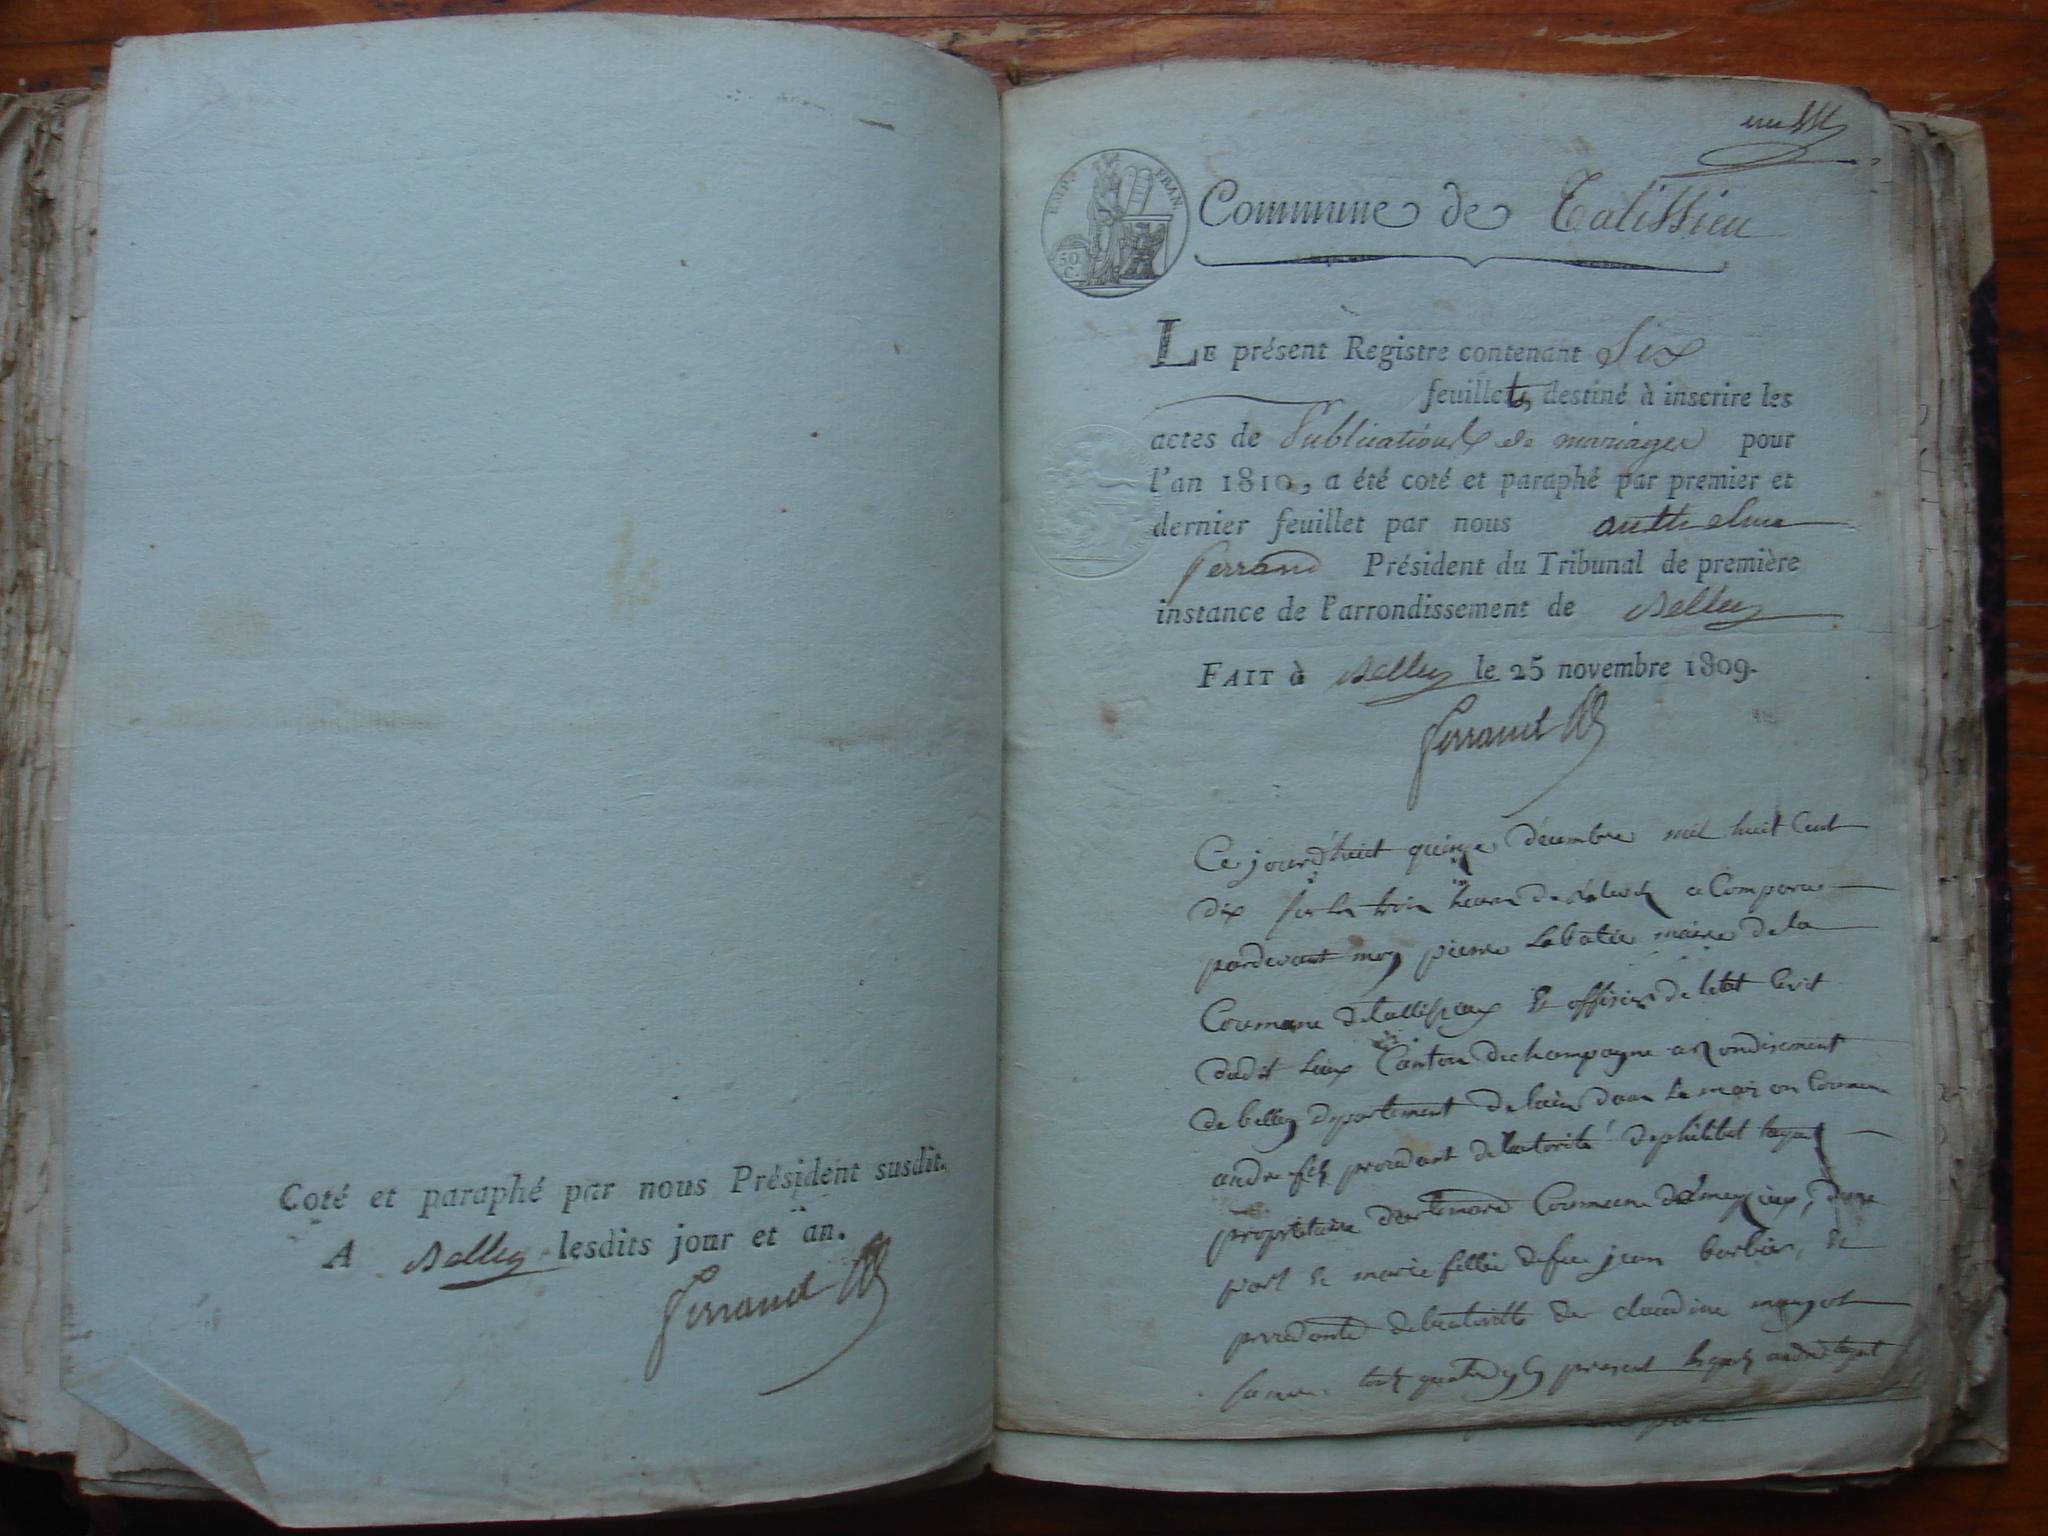 Coté et paraphé par nous Président susdit.
A Belley lesdits jour et an.
Ferrand
EMP.e FRAN.
50 C.
Commune de Talissieu
LE présent Registre contenant Six
feuillets, destiné à inscrire les
actes de Publications de mariages pour
l'an 1810, a été coté et paraphé par premier et
dernier feuillet par nous anthelme
ferrand Président du Tribunal de première
instance de l'arrondissement de Belley
FAIT à Belley le 25 novembre 1809.
Ferrand
Ce jourd'huit quinze décembre mil huit Cent
dix sur les trois heures de a Comparu
pardevant moy pierre Labatie maire de la
Commune de tallissieux & officier de letat Civit
dudit lieux Canton de champagne arondisement
de belley departement de lain dans la maison Commune
andre fils procedant de lautorité de philibert tagat
propriétaire d'artemard Commune , dune
part & marie fillie de feu jean barbier, &
procedante de lautoritte de claudine
sa mere tous quatre present lesquels andre tagat